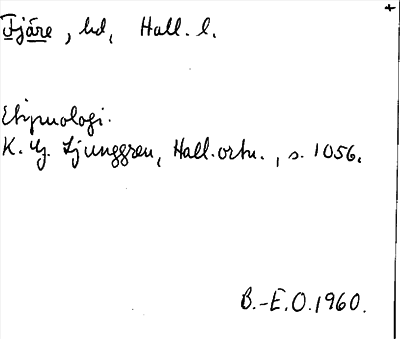 Fjäre, hd, Hall. l.
Etymologi.
K. G. Ljunggren, Hall.ortn., s. 1056.
B.-E.O.1960.